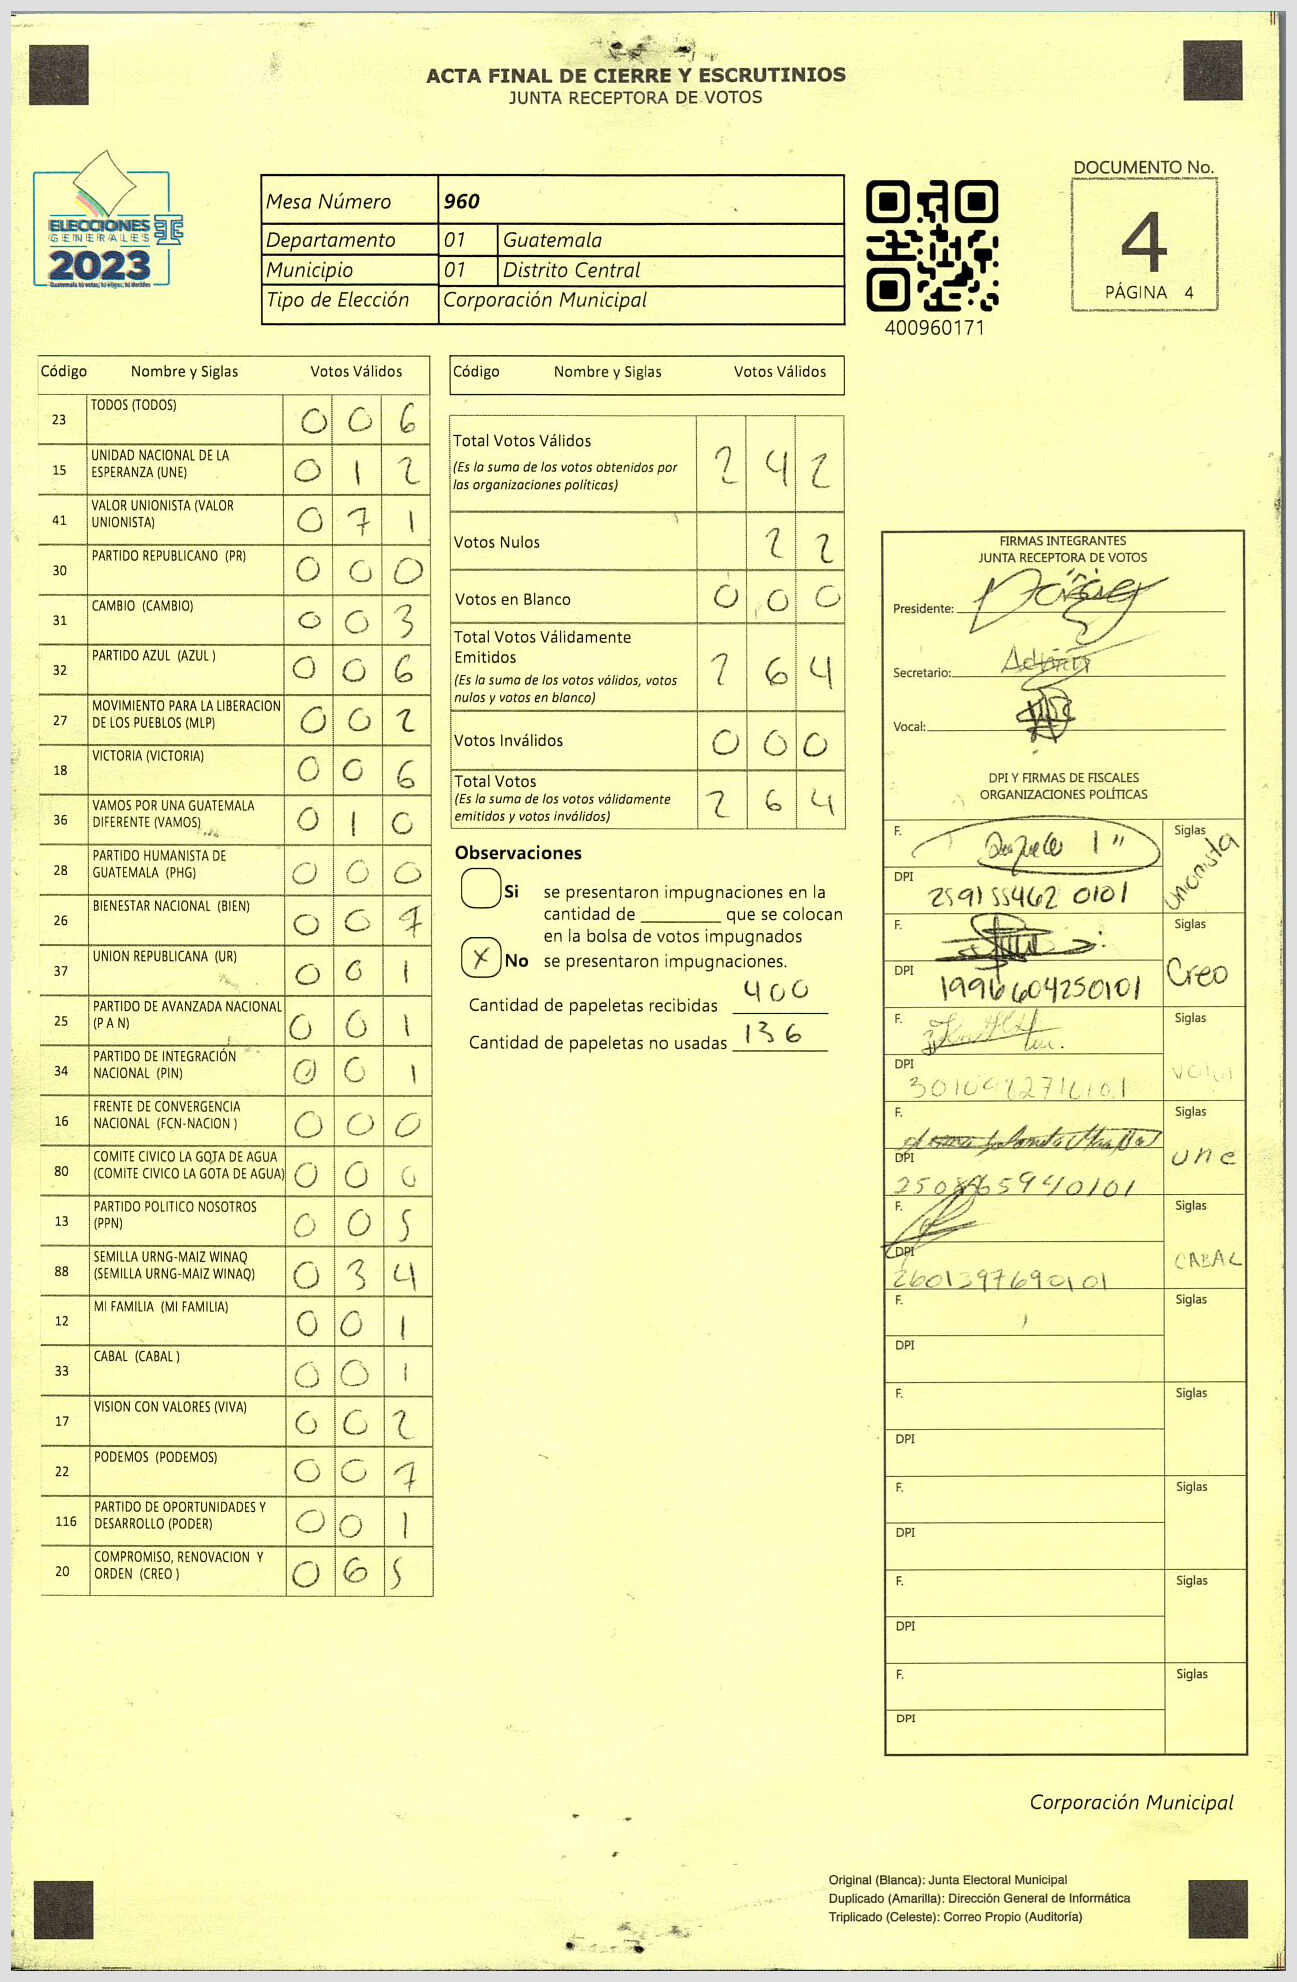 ACTA FINAL DE CIERRE Y ESCRUTINIOS
JUNTA RECEPTORA DE VOTOS
ELECCIONES
GENERALES
2023
Guatemala tú votas, tú eliges, tú decides
Mesa Número 960
Departamento 01 Guatemala
Municipio 01 Distrito Central
Tipo de Elección Corporación Municipal
400960171
DOCUMENTO No.
4
PÁGINA 4
Código Nombre y Siglas Votos Válidos
23 TODOS (TODOS) 0 0 6
15 UNIDAD NACIONAL DE LA
ESPERANZA (UNE) 0 1 2
41 VALOR UNIONISTA (VALOR
UNIONISTA) 0 7 1
30 PARTIDO REPUBLICANO (PR) 0 0 0
31 CAMBIO (CAMBIO) 0 0 3
32 PARTIDO AZUL (AZUL ) 0 0 6
27 MOVIMIENTO PARA LA LIBERACION
DE LOS PUEBLOS (MLP) 0 0 2
18 VICTORIA (VICTORIA) 0 0 6
36 VAMOS POR UNA GUATEMALA
DIFERENTE (VAMOS) 0 1 0
28 PARTIDO HUMANISTA DE
GUATEMALA (PHG) 0 0 0
26 BIENESTAR NACIONAL (BIEN) 0 0 7
37 UNION REPUBLICANA (UR) 0 0 1
25 PARTIDO DE AVANZADA NACIONAL
(P A N) 0 0 1
34 PARTIDO DE INTEGRACIÓN
NACIONAL (PIN) 0 0 1
16 FRENTE DE CONVERGENCIA
NACIONAL (FCN-NACION ) 0 0 0
80 COMITE CIVICO LA GOTA DE AGUA
(COMITE CIVICO LA GOTA DE AGUA) 0 0 0
13 PARTIDO POLITICO NOSOTROS
(PPN) 0 0 5
88 SEMILLA URNG-MAIZ WINAQ
(SEMILLA URNG-MAIZ WINAQ) 0 3 4
12 MI FAMILIA (MI FAMILIA) 0 0 1
33 CABAL (CABAL ) 0 0 1
17 VISION CON VALORES (VIVA) 0 0 2
22 PODEMOS (PODEMOS) 0 0 7
116 PARTIDO DE OPORTUNIDADES Y
DESARROLLO (PODER) 0 0 1
20 COMPROMISO, RENOVACION Y
ORDEN (CREO ) 0 6 5
Código Nombre y Siglas Votos Válidos
Total Votos Válidos 2 4 2
(Es la suma de los votos obtenidos por
las organizaciones políticas)
Votos Nulos 2 2
Votos en Blanco 0 0 0
Total Votos Válidamente
Emitidos 2 6 4
(Es la suma de los votos válidos, votos
nulos y votos en blanco)
Votos Inválidos 0 0 0
Total Votos 2 6 4
(Es la suma de los votos válidamente
emitidos y votos inválidos)
Observaciones
Si se presentaron impugnaciones en la
cantidad de ________ que se colocan
en la bolsa de votos impugnados
X No se presentaron impugnaciones.
Cantidad de papeletas recibidas 400
Cantidad de papeletas no usadas 136
FIRMAS INTEGRANTES
JUNTA RECEPTORA DE VOTOS
Presidente:
Secretario:
Vocal:
DPI Y FIRMAS DE FISCALES
ORGANIZACIONES POLÍTICAS
F. Siglas
Unionista
DPI 259155462 0101
F. Siglas
Creo
DPI 1996604250101
F. Siglas
DPI
F. Siglas
une
DPI
F. Siglas
CABAL
DPI 2601397690101
F. Siglas
DPI
F. Siglas
DPI
F. Siglas
DPI
F. Siglas
DPI
F. Siglas
DPI
Corporación Municipal
Original (Blanca): Junta Electoral Municipal
Duplicado (Amarilla): Dirección General de Informática
Triplicado (Celeste): Correo Propio (Auditoría)